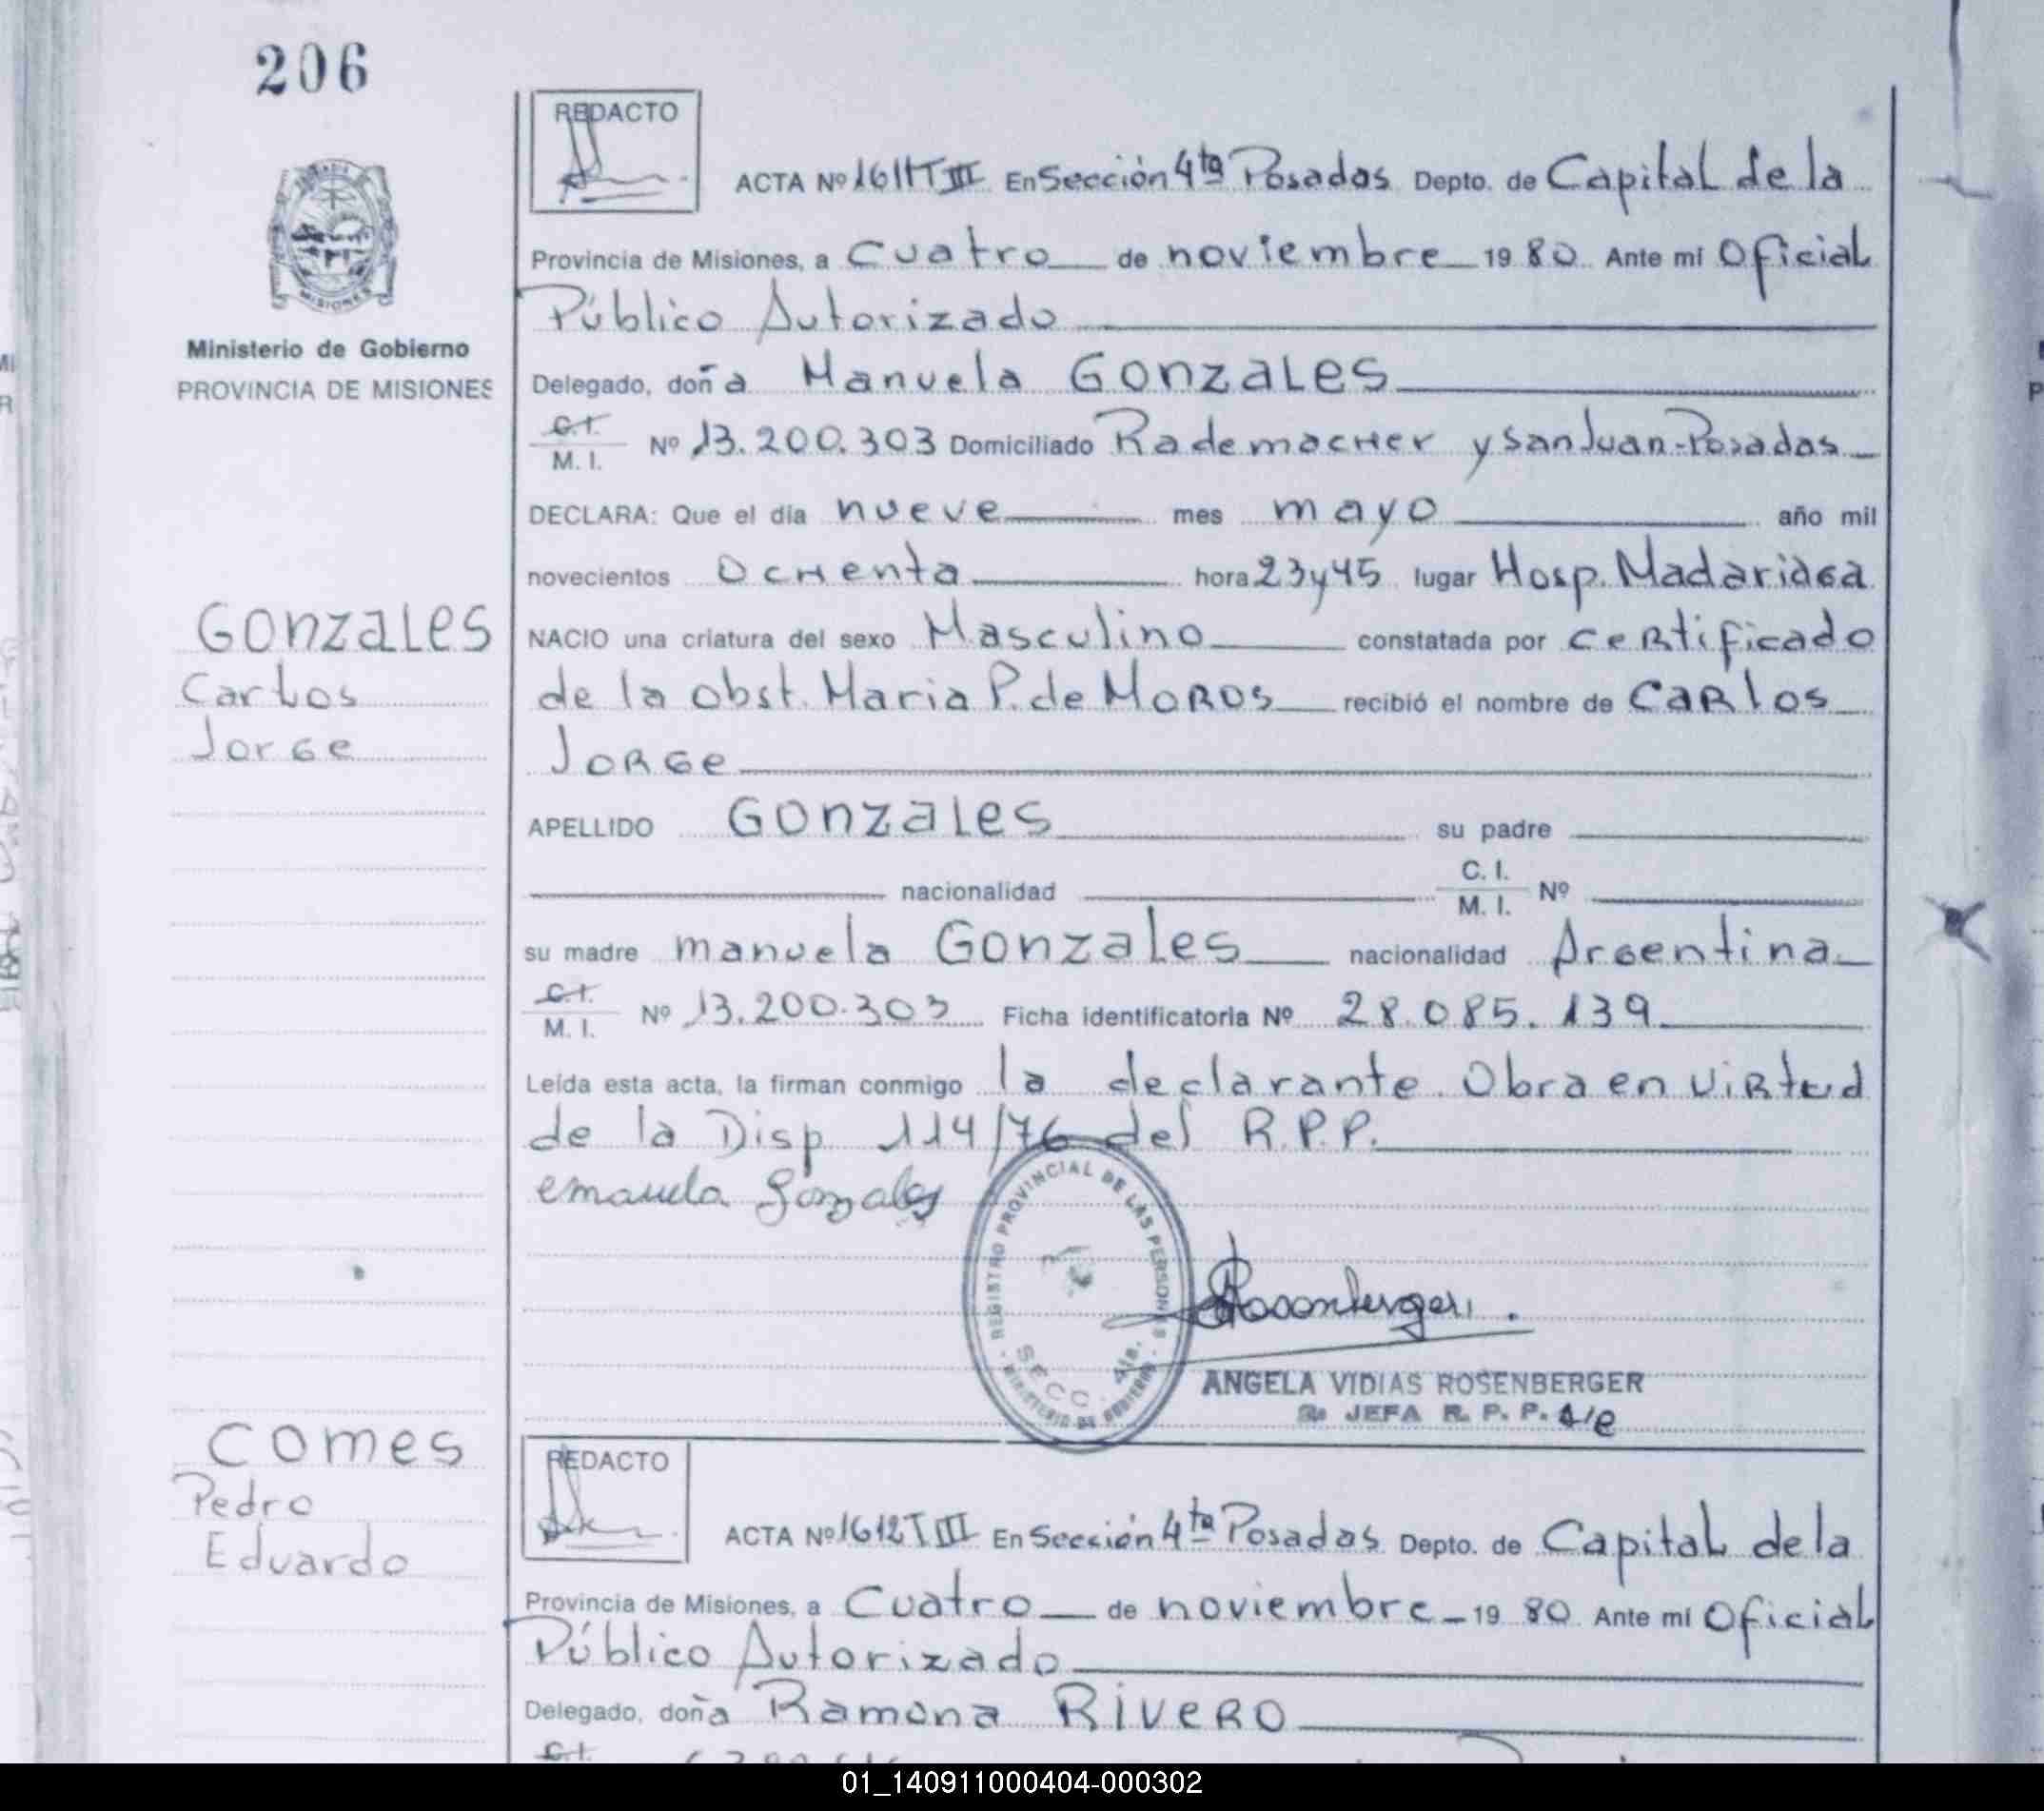 206
REDACTO
ACTA Nº 1611 T III En Sección 4ta Posadas Depto. de Capital de la
Provincia de Misiones, a Cuatro de noviembre 19 80 Ante mí Oficial
Público Autorizado
MISIONES
Ministerio de Gobierno
PROVINCIA DE MISIONES
Delegado, doña Manuela Gonzales
C.I. M. I. Nº 13.200.303 Domiciliado Rademacher y San Juan - Posadas
DECLARA: Que el día nueve mes mayo año mil
novecientos Ochenta hora 23 y 45 lugar Hosp. Madariaga
Gonzales
Carlos
Jorge
NACIO una criatura del sexo Masculino constatada por certificado
de la obst. Maria P. de Moros recibió el nombre de Carlos
Jorge
APELLIDO Gonzales su padre
nacionalidad C. I. M. I. Nº
su madre manuela Gonzales nacionalidad Argentina
C.I. M. I. Nº 13.200.303 Ficha identificatoria Nº 28.085.139
Leída esta acta, la firman conmigo la declarante. Obra en virtud
de la Disp 114/76 del R.P.P.
emanuela Gonzales
REGISTRO PROVINCIAL DE LAS PERSONAS
SECC. 4ta.
MINISTERIO DE GOBIERNO
Rosenberger
ANGELA VIDIAS ROSENBERGER
JEFA R. P. P. a/e
Comes
Pedro
Eduardo
REDACTO
ACTA Nº 1612 T III En Sección 4ta Posadas Depto. de Capital de la
Provincia de Misiones, a Cuatro de noviembre 19 80 Ante mí Oficial
Público Autorizado
Delegado, doña Ramona Rivero
C.I.
01_140911000404-000302